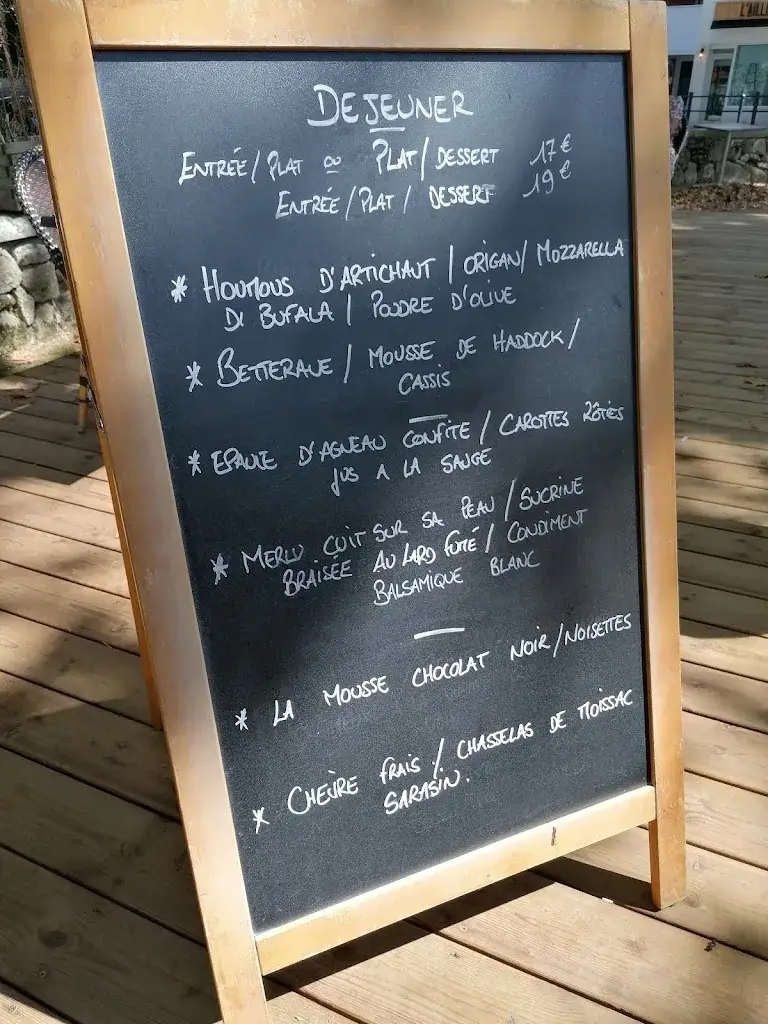 DEJEUNER
ENTRÉE/PLAT ou PLAT/DESSERT 17€
ENTRÉE/PLAT/DESSERT 19€
* HOUMOUS D'ARTICHAUT/ORIGAN/MOZZARELLA
DI BUFALA/POUDRE D'OLIVE
* BETTERAVE/MOUSSE DE HADDOCK/
CASSIS
* EPAULE D'AGNEAU CONFITE/CAROTTES RÔTIES
JUS A LA SAUGE
* MERLU CUIT SUR SA PEAU/SUCRINE
BRAISEE AU LARD FUMÉ/CONDIMENT
BALSAMIQUE BLANC
* LA MOUSSE CHOCOLAT NOIR/NOISETTES
* CHEVRE FRAIS/CHASSELAS DE MOISSAC
SARASIN.